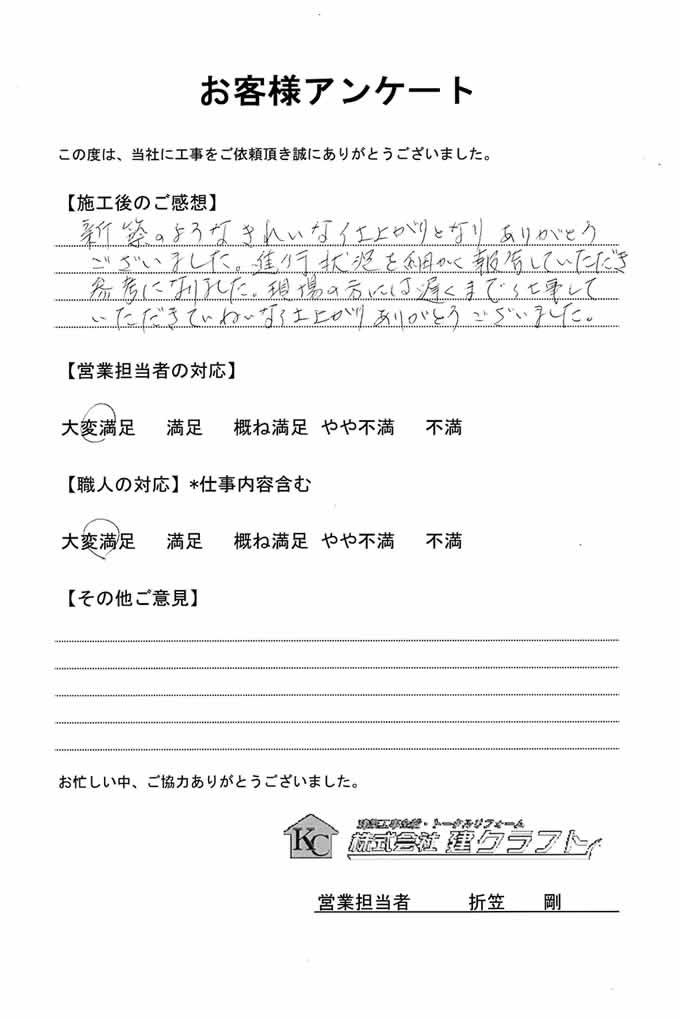 お客様アンケート
この度は、当社に工事をご依頼頂き誠にありがとうございました。
【施工後のご感想】
新築のようなきれいな仕上がりとなりありがとう
ございました。進行状況を細かく報告していただき
参考になりました。現場の方には遅くまで仕事して
いただきていねいな仕上がりありがとうございました。
【営業担当者の対応】
大変満足 満足 概ね満足 やや不満 不満
【職人の対応】*仕事内容含む
大変満足 満足 概ね満足 やや不満 不満
【その他ご意見】
お忙しい中、ご協力ありがとうございました。
KC
建築工事全般・トータルリフォーム
株式会社 建クラフト
営業担当者 折笠 剛